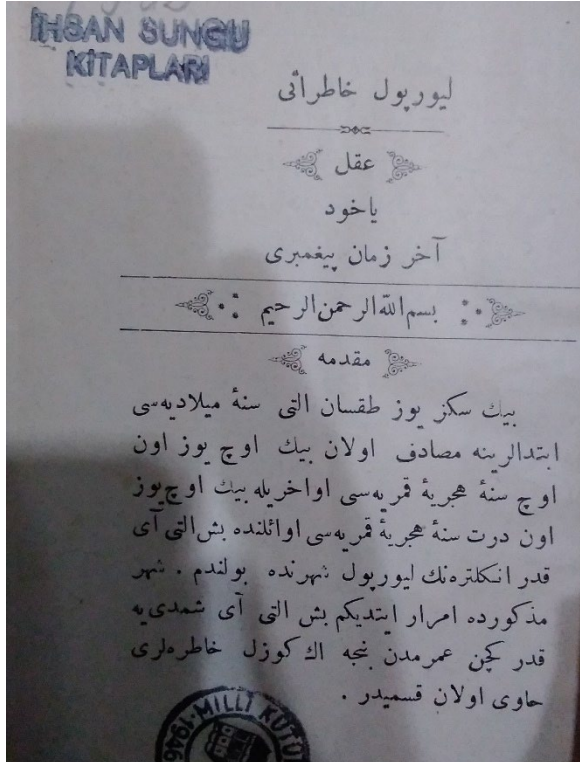 İHSAN SUNGU
KİTAPLARI
ليورپول خاطراتى
عقل
ياخود
آخر زمان پيغمبرى
بسم الله الرحمن الرحيم
مقدمه
بيك سكز يوز طقسان التى سنهٔ ميلاديه‌سى
ابتدالرينه مصادف اولان بيك اوچ يوز اون
اوچ سنهٔ هجريهٔ قمريه‌سى اواخريله بيك اوچ يوز
اون درت سنهٔ هجريهٔ قمريه‌سى اوائلنده بش التى آى
قدر انكلتره‌نك ليورپول شهرنده بولندم . شهر
مذكورده امرار ايتديكم بش التى آى شمدى‌يه
قدر كچن عمرمدن بنجه اك كوزل خاطره‌لرى
حاوى اولان قسميدر .
1946 · MİLLİ KÜTÜ